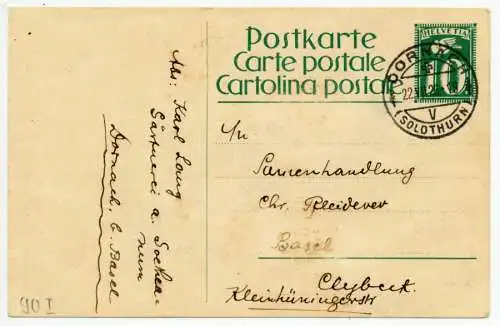 Postkarte
Carte postale
Cartolina postale
HELVETIA
10
DORNACH
22.
V
(SOLOTHURN)
Abs: Karl Lang
Gärtnerei a. Goethea-
num
Dornach, b. Basel
T/n
Samenhandlung
Chr. Pfleiderer
Basel
Clybeck.
Kleinhüningerstr
90 I